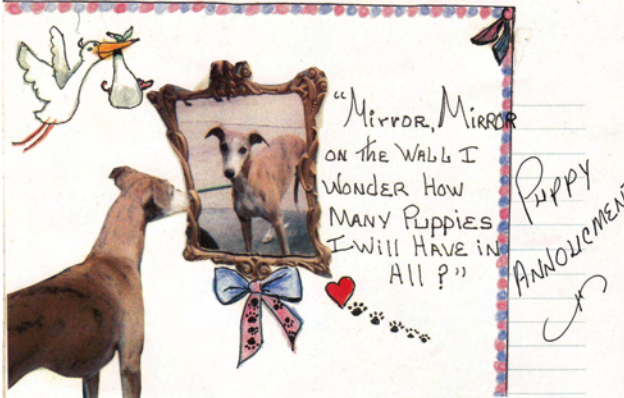 "Mirror, Mirror
on the Wall I
Wonder How
Many Puppies
I Will Have in
All?"
Puppy
Annoucment